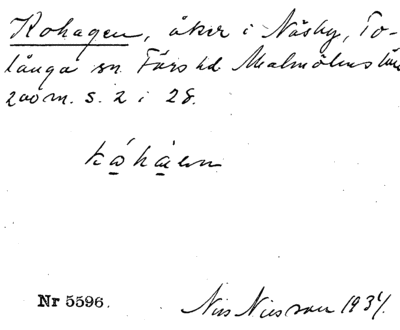 Kohagen, åker i Näsby, To-
långa sn Färs hd Malmöhus län
200 m. S. 2 i 28.
kåhåen
Nr 5596.
Nils Nilsson 1934.